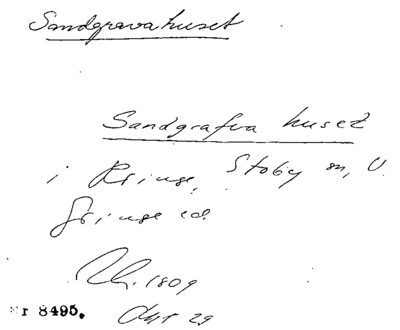 Sandgravahuset
Sandgrafva huset
i Kringe, Stoby sn, V.
Gringe hd.
Lh. 1809
Nr 8495. Okt 29